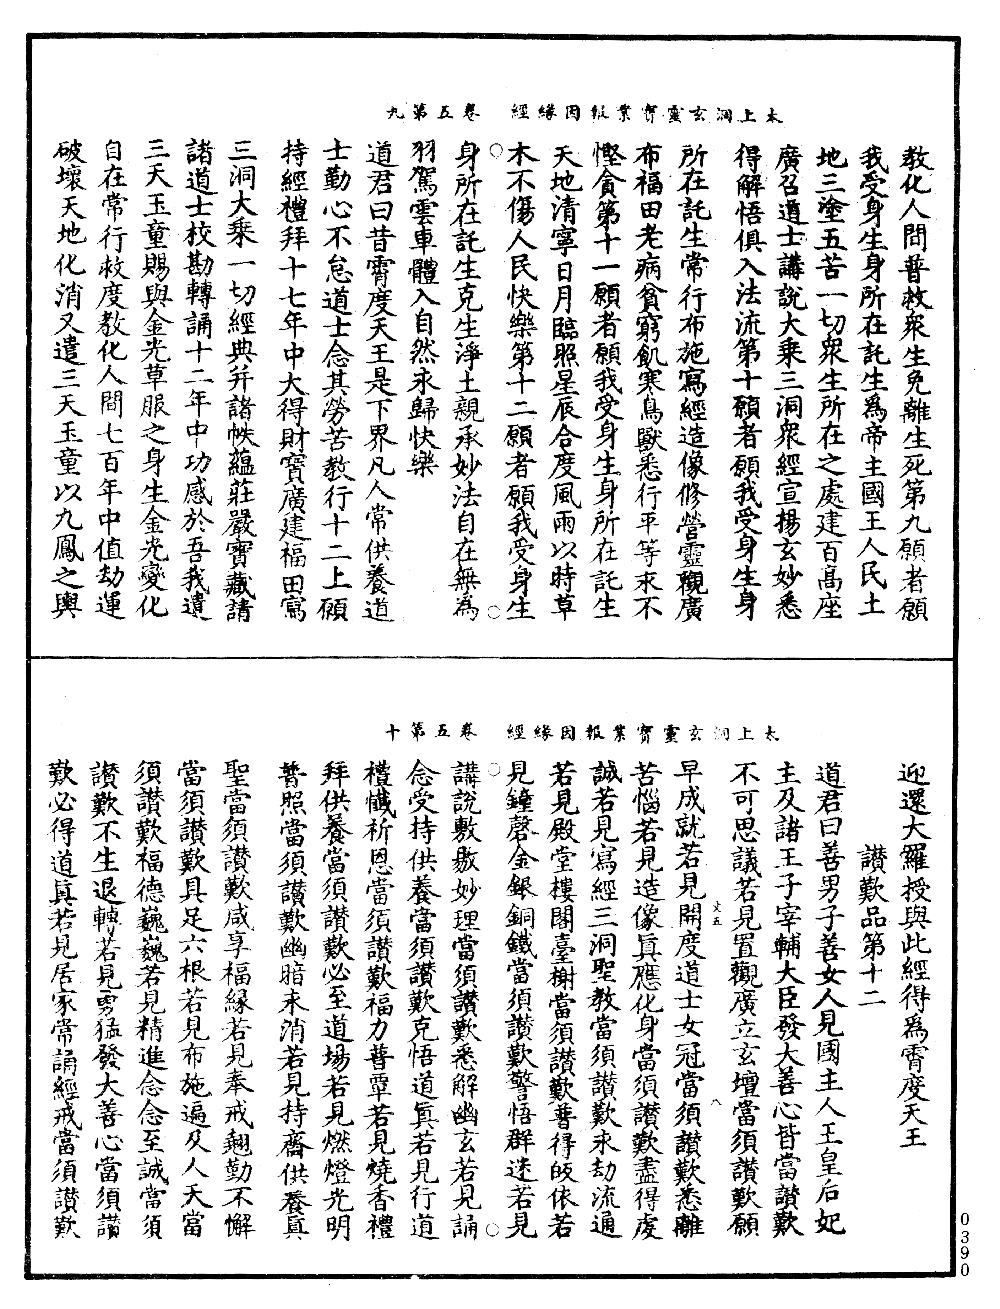 太上洞玄靈寶業報因緣經　卷五第九
教化人間普救衆生免離生死第九願者願
我受身生身所在託生爲帝主國王人民土
地三塗五苦一切衆生所在之處建百高座
廣召道士講說大乘三洞衆經宣揚玄妙悉
得解悟俱入法流第十願者願我受身生身
所在託生常行布施寫經造像修營靈觀廣
布福田老病貧窮飢寒鳥獸悉行平等求不
慳貪第十一願者願我受身生身所在託生
天地清寧日月臨照星辰合度風雨以時草
木不傷人民快樂第十二願者願我受身生
身所在託生克生淨土親承妙法自在無爲
羽駕雲車體入自然永歸快樂
道君曰昔霄度天王是下界凡人常供養道
士勤心不怠道士念其勞苦教行十二上願
持經禮拜十七年中大得財寶廣建福田寫
三洞大乘一切經典并諸帙蘊莊嚴寶藏請
諸道士校勘轉誦十二年中功感於吾我遣
三天玉童賜與金光草服之身生金光變化
自在常行救度教化人間七百年中值劫運
破壞天地化消又遣三天玉童以九鳳之輿
太上洞玄靈寶業報因緣經　卷五第十
迎還大羅授與此經得爲霄度天王
讃歎品第十二
道君曰善男子善女人見國主人王皇后妃
主及諸王子宰輔大臣發大善心皆當讃歎
不可思議若見置觀廣立玄壇當須讃歎願
早成就若見開度道士女冠當須讃歎悉離
苦惱若見造像眞應化身當須讃歎盡得虔
誠若見寫經三洞聖教當須讃歎永劫流通
若見殿堂樓閣臺榭當須讃歎普得皈依若
見鐘磬金銀銅鐵當須讃歎警悟群迷若見
講說敷敭妙理當須讃歎悉解幽玄若見誦
念受持供養當須讃歎克悟道眞若見行道
禮懺祈恩當須讃歎福力普覃若見燒香禮
拜供養當須讃歎必至道場若見燃燈光明
普照當須讃歎幽暗永消若見持齋供養眞
聖當須讃歎咸享福緣若見奉戒翹勤不懈
當須讃歎具足六根若見布施遍及人天當
須讃歎福德巍巍若見精進念念至誠當須
讃歎不生退轉若見勇猛發大善心當須讃
歎必得道眞若見居家常誦經戒當須讃歎
0390